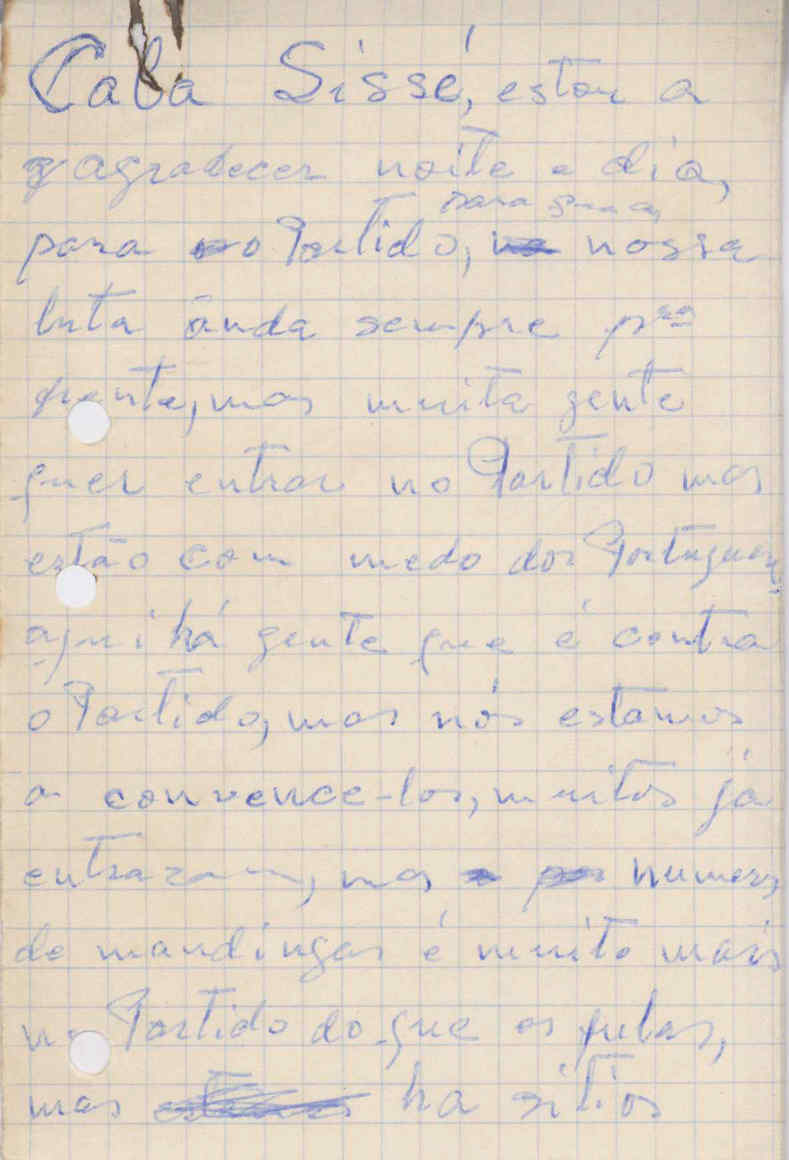 Caba Sissé, estou a
agradecer noite e dia,
para
para o Partido, nossa
luta ânda sempre pra
frente, mas muita gente
quer entrar no Partido mas
estão com medo dos Portugueses,
aqui há gente que é contra
o Partido, mas nós estamos
a convence-los, muitos já
entraram, mas numero
de mandingas é muito mais
no Partido do que os fulas,
mas ha sitios